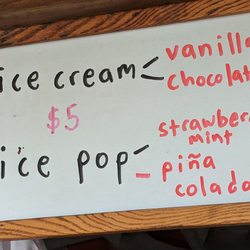 ice cream
vanilla
chocolat
$5
ice pop
strawber
mint
piña
colada